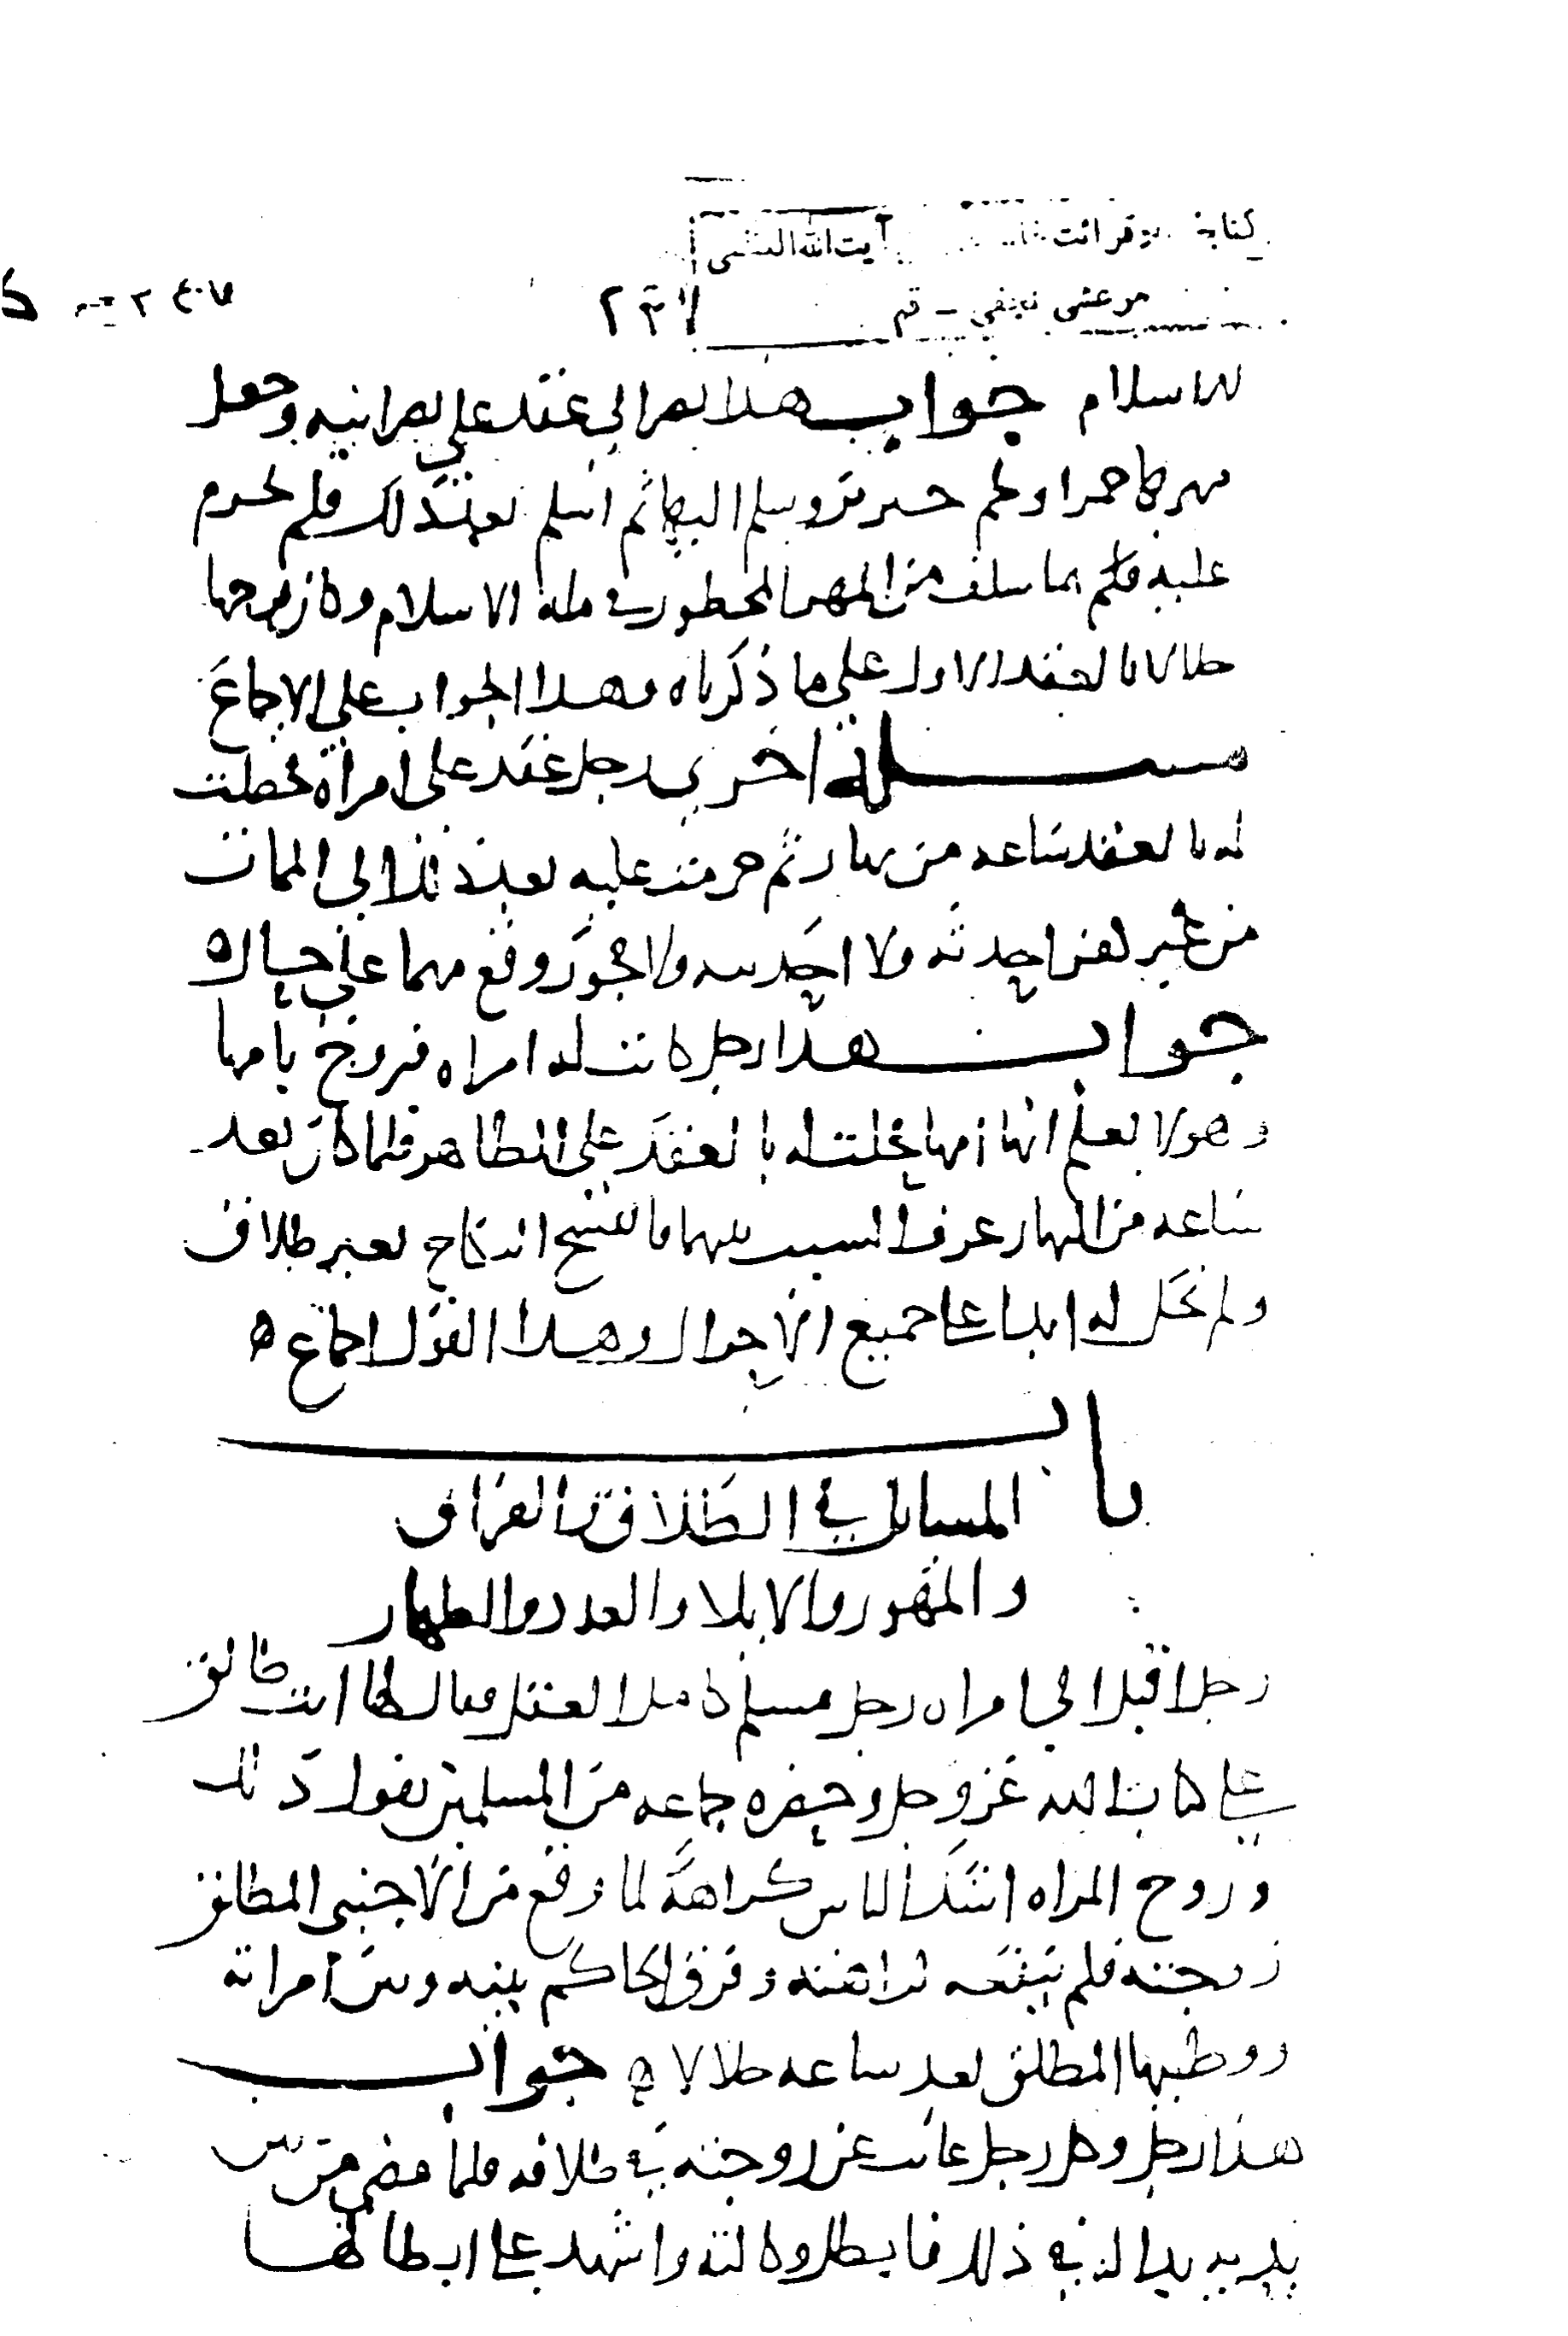 كتابخ قرائت آيت الله
مرعشى نجفي - قم
٢٣٧
للاسلام جواب هذا نصراني عقد على نصرانيه وجعل
مهرها خمرا ولحم خنزير وسلم اليها ثم اسلم بعد ذلك فلم تحرم
عليه بما سلف من المهر المحظور في ملة الاسلام وكان فرجها
حلالا بالعقد الاول على ما ذكرناه وهذا الجواب على الاجماع
مسئلة اخرى رجل عقد على امراة فحلت
له بالعقد ساعه من نهار ثم حرمت عليه بعد ذلك الى الممات
من غير كفر احدثه ولا احدثته ولا فجور وقع منهما على حياله
جواب هذا رجل كانت له امراه فتزوج بامها
وهو لا يعلم انها امها فحلت له بالعقد على الظاهر فلما كان بعد
ساعه من النهار عرف النسب بينهما فانفسخ النكاح بغير طلاق
ولم تحل له ابدا على جميع الاحوال وهذا القول اجماع ه
باب
المسايل في الطلاق والفراق
والمهور والايلا والعدد والظهار
رجل اقبل الى امراه رجل مسلم كامل العقل فقال لها انت طالق
على كتاب الله عز وجل وحضره جماعه من المسلمين بقول ذلك
وزوج المراه اشد الناس كراهة لما وقع من الاجنبي المطلق
زوجته فلم تنفعه كراهته وفرق الحاكم بينه وبين امراته
ووطيها المطلق بعد ساعه حلالا ه جواب
هذا رجل وكل رجل غائب عن زوجته في طلاقه فلما مضى من بين
يديه بدا له في ذلك فابطل وكالته واشهد على ابطالها